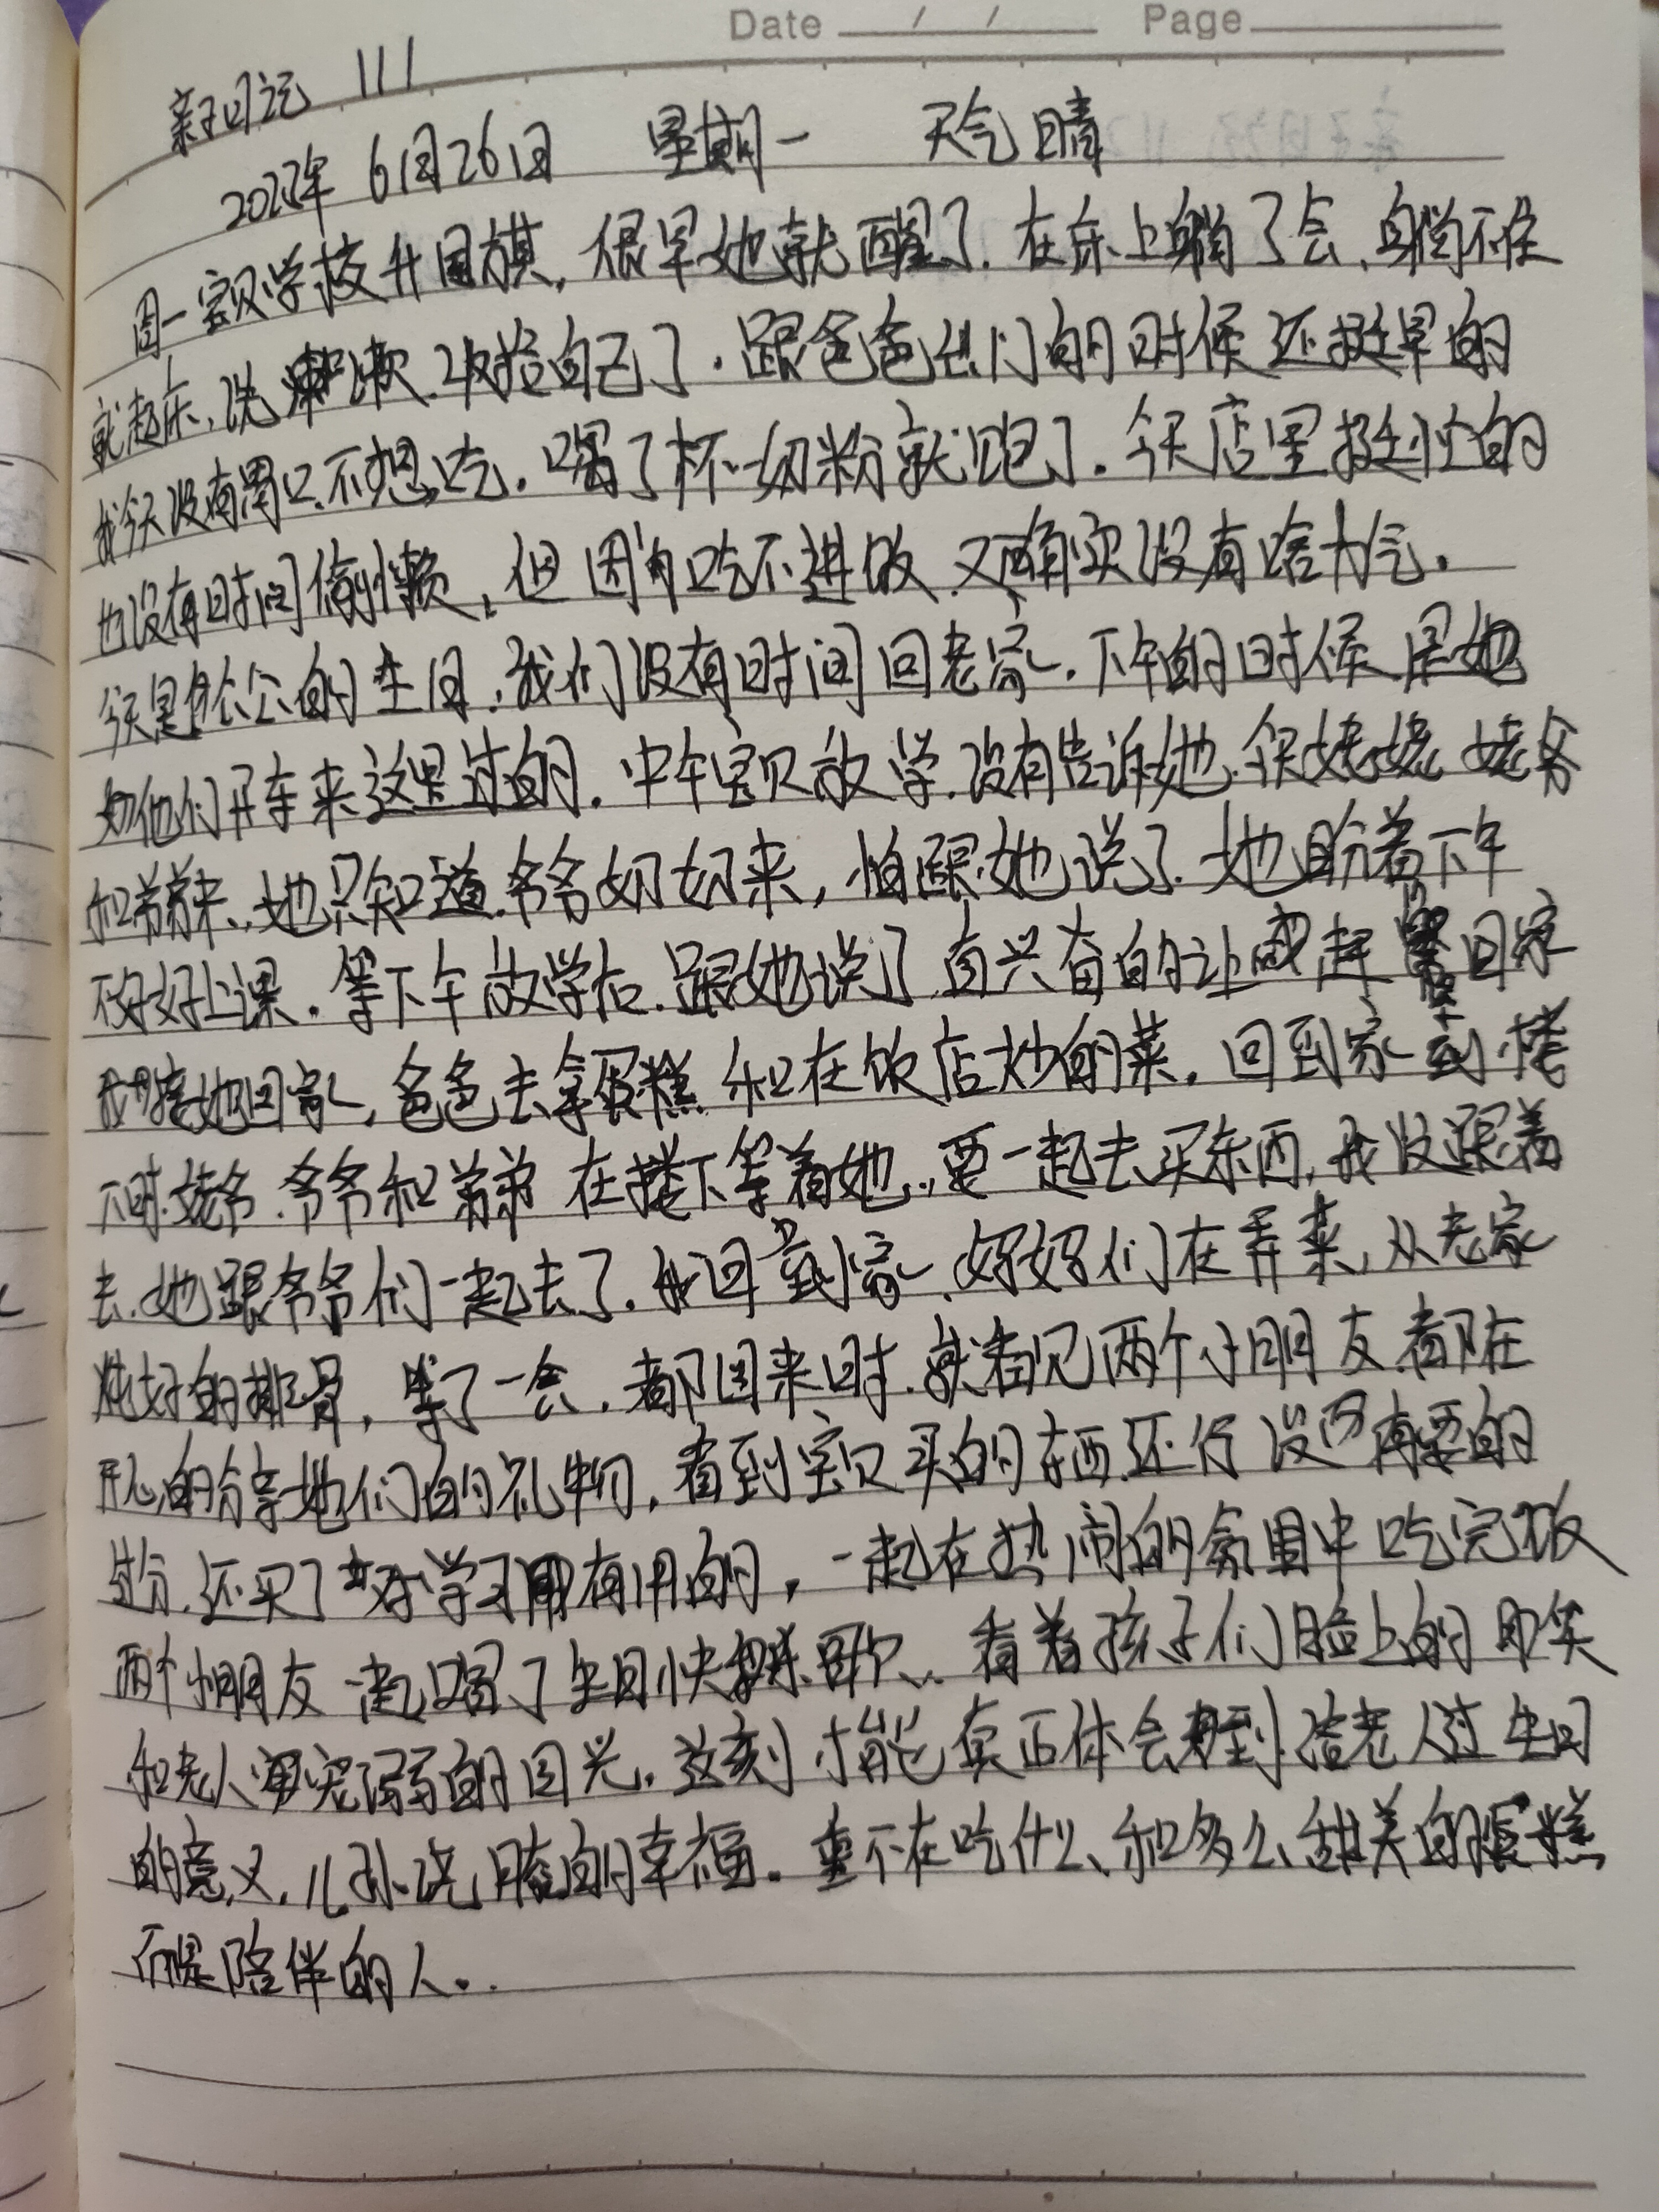 Date / / Page
亲子日记 111
2023年 6月26日 星期一 天气 晴
周一宝贝学校升国旗，很早她就醒了。在床上躺了会，躺不住
就起床，洗漱，收拾自己了。跟爸爸出门的时候还挺早的
我今天没有胃口，不想吃。喝了杯奶粉就饱了。今天店里挺忙的
也没有时间偷懒，但因为吃不进饭，又确实没有啥力气。
今天是公公的生日，我们没有时间回老家。下午的时候是她
奶他们开车来这里过的。中午宝贝放学，没有告诉她，今天姥姥姥爷
和弟弟来，她只知道爷爷奶奶来，怕跟她说了，她盼着下午
不好好上课。等下午放学后，跟她说了，高兴奋的让我赶紧回家
我接她回家，爸爸去拿蛋糕和在饭店炒的菜。回到家到楼
下时，姥爷、爷爷和弟弟在楼下等着她，要一起去买东西，我没跟着
去，她跟爷爷们一起去了。我回到家，妈妈们在弄菜，从老家
炖好的排骨，等了一会，都回来时，就看见两个小朋友都在
开心的分享她们的礼物，看到宝贝买的东西还行没有要的
过分，还买了对学习有用的，一起在热闹的氛围中吃完饭
两个小朋友一起唱了生日快乐歌，看着孩子们脸上的笑
和老人宠溺的目光，这刻才能真正体会到给老人过生日
的意义，儿孙绕膝的幸福。重不在吃什么、和多么甜美的蛋糕
而是陪伴的人。